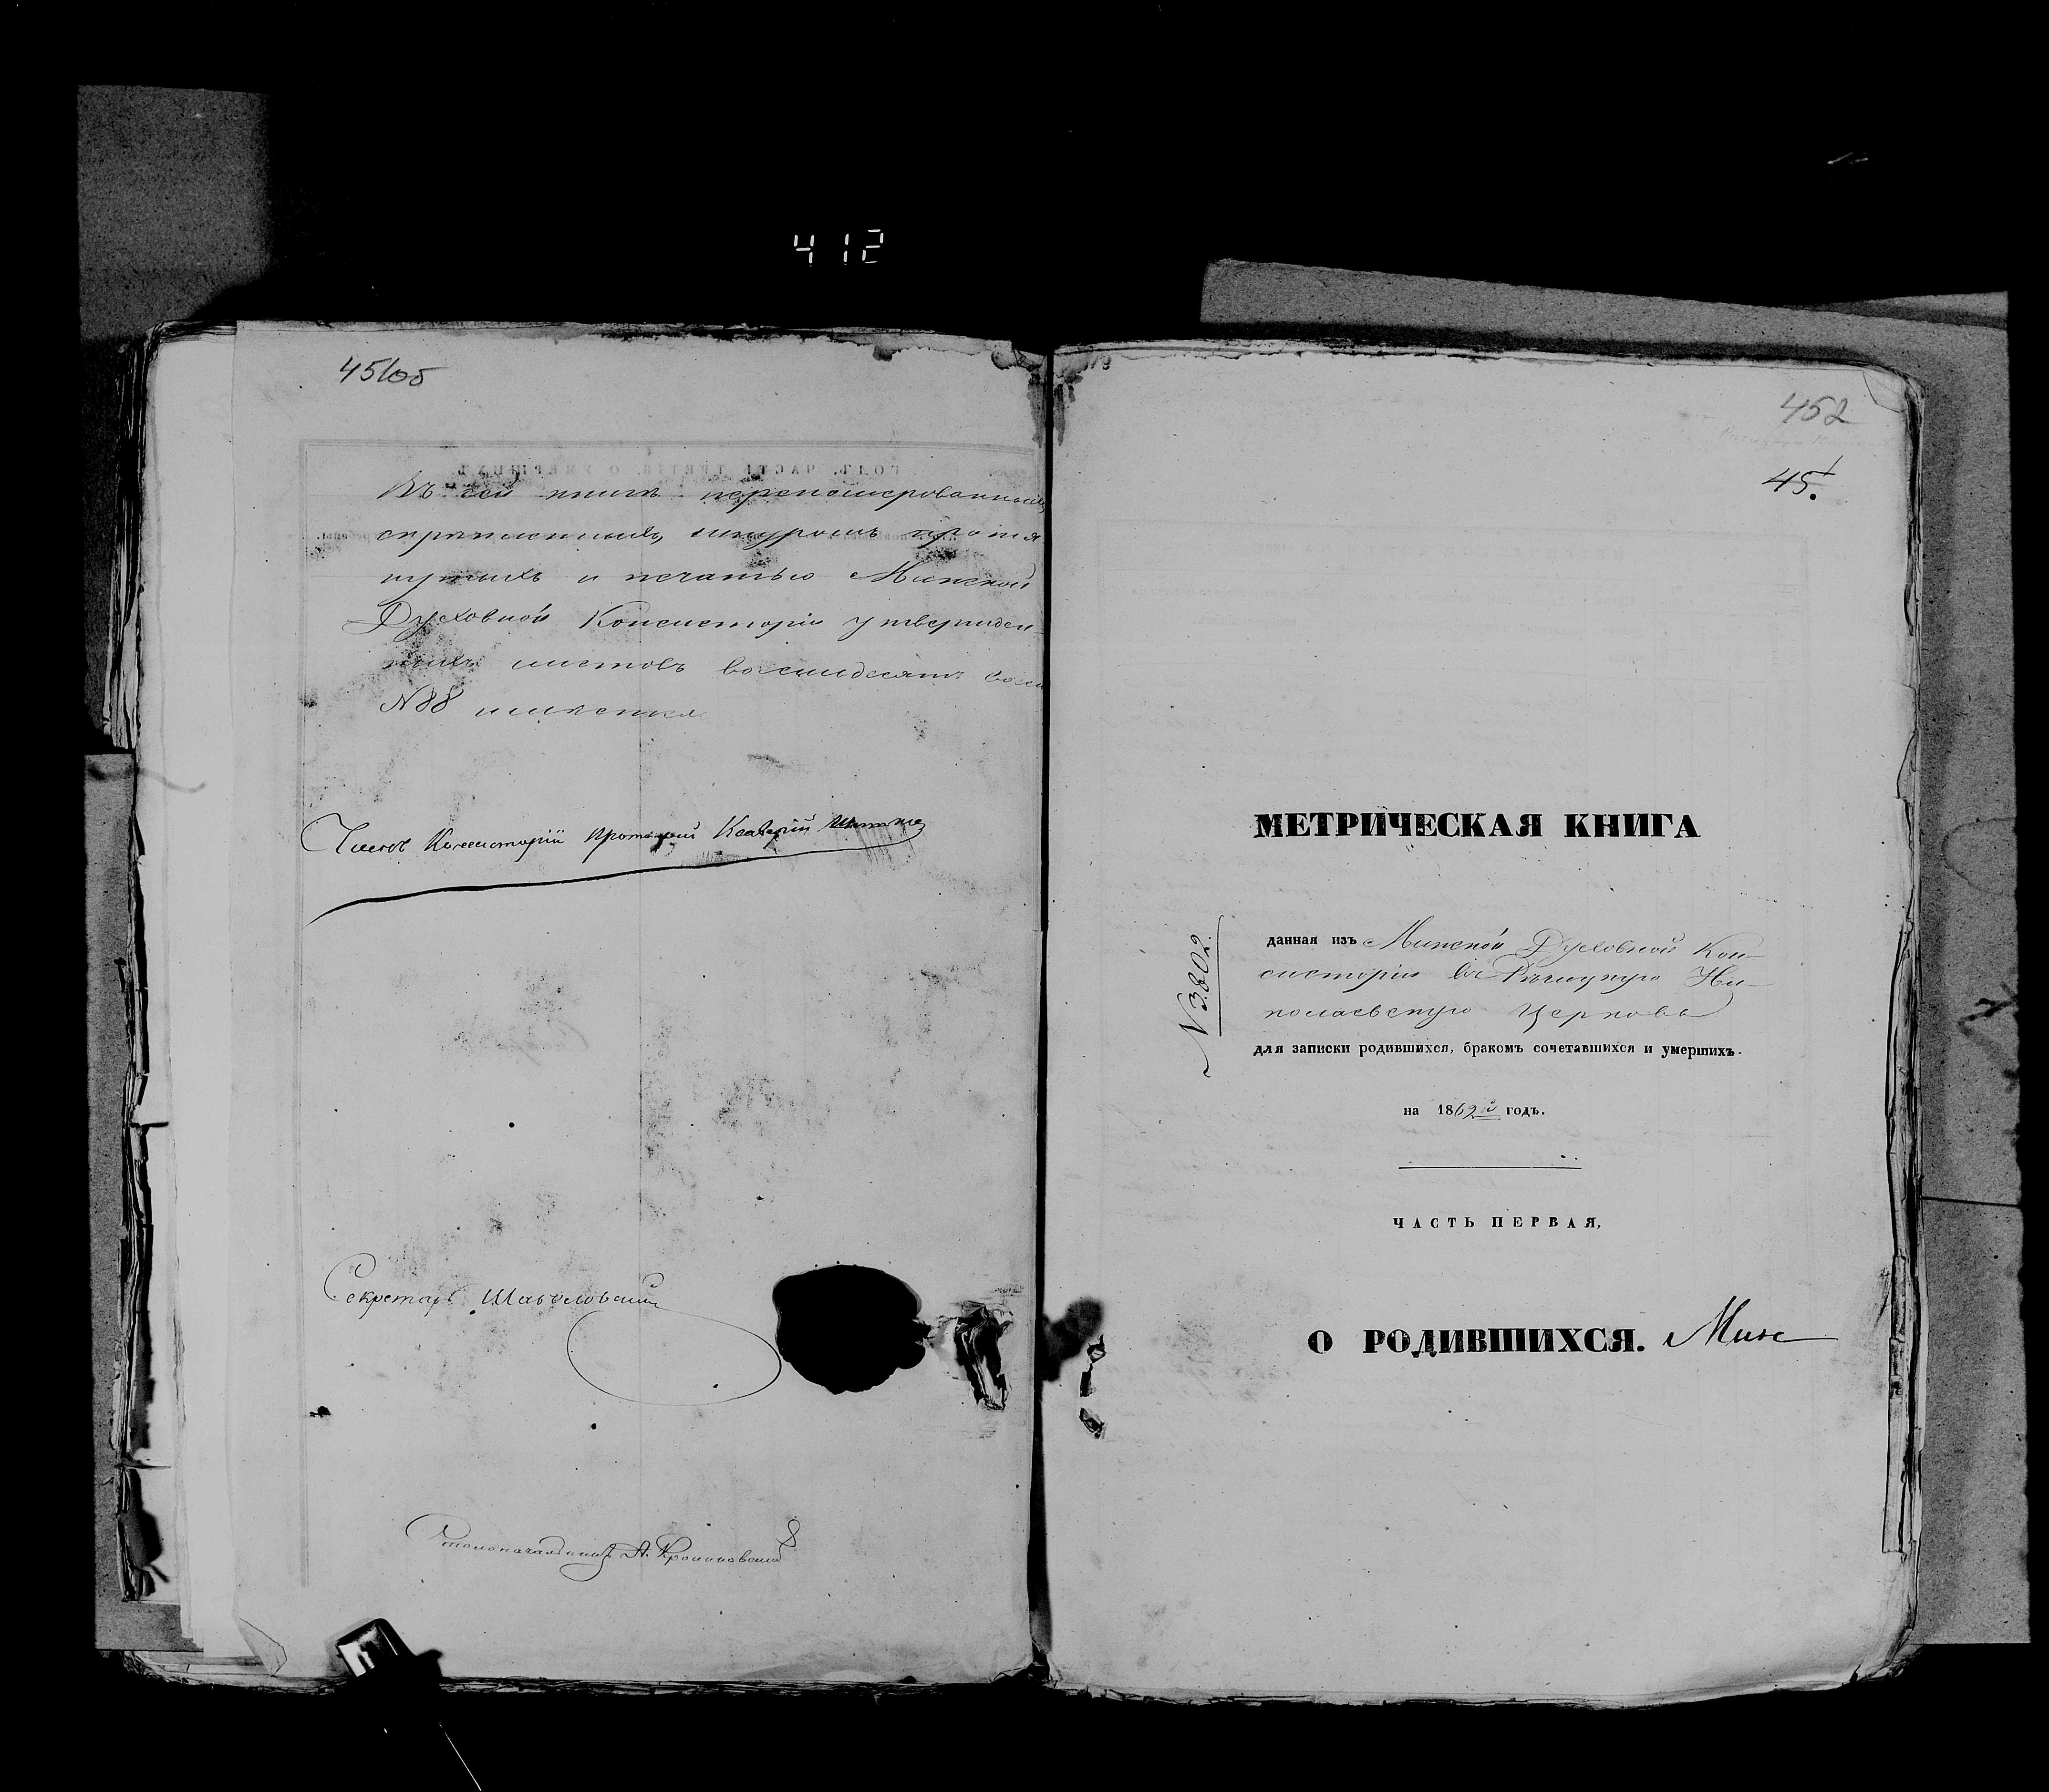 412
451об
Въ сей книгѣ перенумерованныхъ,
скрѣпленныхъ, шнуромъ протя
нутыхъ и печатью Минской
Духовной Консисторіи утвержден-
ныхъ листовъ восемьдесятъ восем
N 88 имѣется
Членъ Консисторіи Протоіерей
Секретарь
Столоначальникъ А.
452
45
МЕТРИЧЕСКАЯ КНИГА
N 3802.
данная изъ Минской Духовной Кон-
систоріи въ Рѣчицкую Ни-
колаевскую Церковь
для записки родившихся, бракомъ сочетавшихся и умершихъ.
на 1862й годъ.
ЧАСТЬ ПЕРВАЯ,
О РОДИВШИХСЯ.